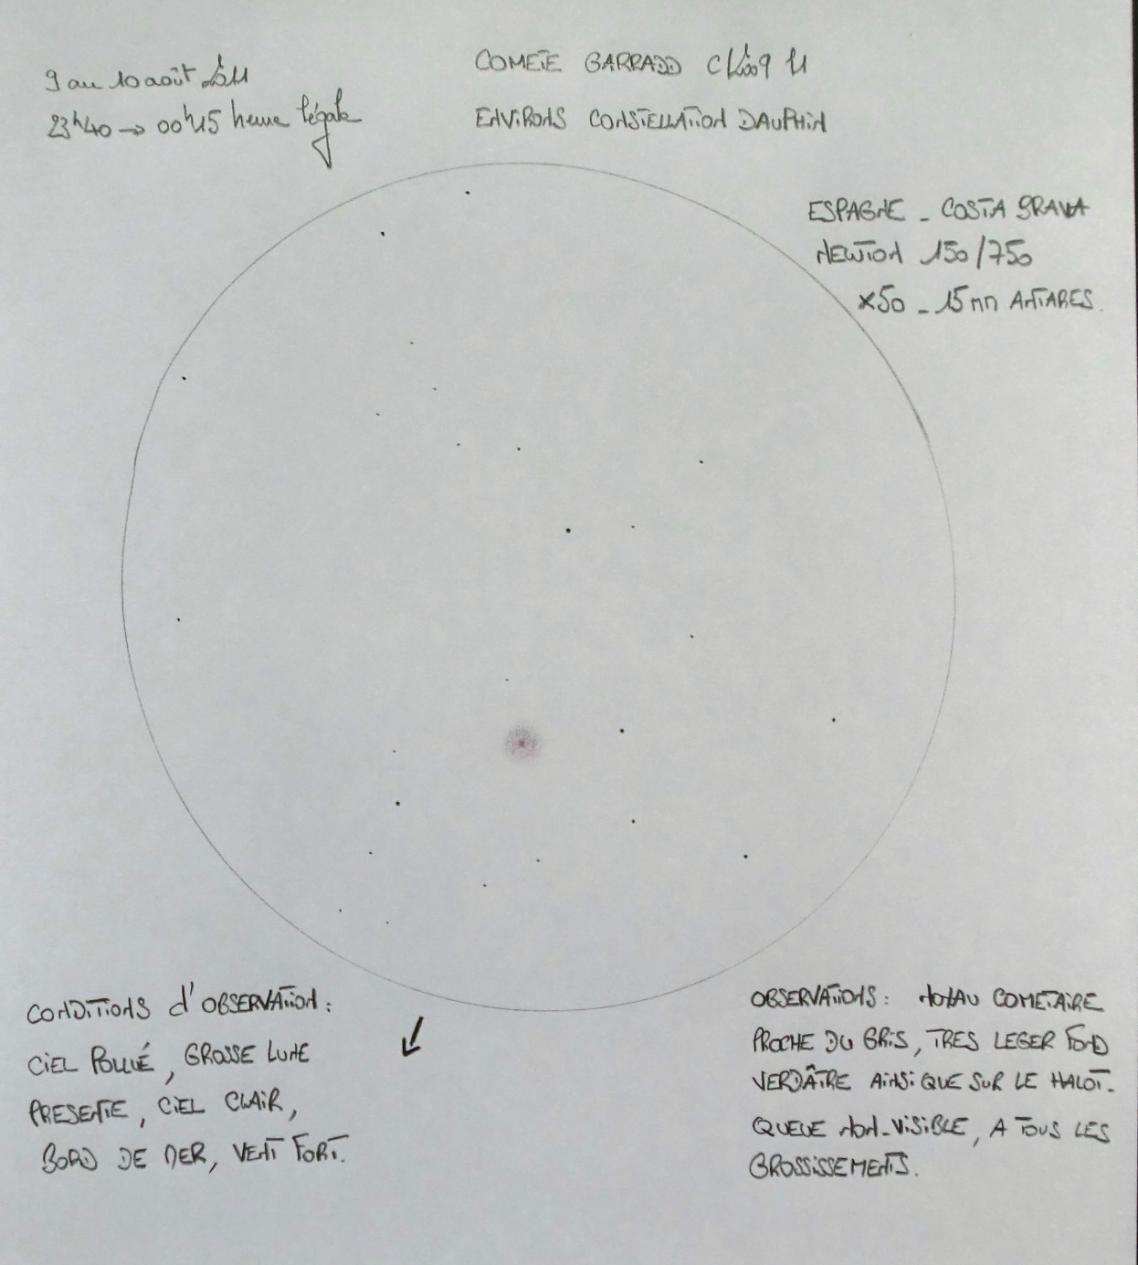 9 au 10 août 2011
23h40 → 00h15 heure légale
COMETE GARRADD C/2009 P1
ENVIRONS CONSTELLATION DAUPHIN
ESPAGNE _ COSTA BRAVA
NEWTON 150/750
x50 _ 15mm ANTARES.
CONDITIONS d'OBSERVATION :
CIEL POLLUÉ, GROSSE LUNE
PRESENTE, CIEL CLAIR,
BORD DE MER, VENT FORT.
OBSERVATIONS : NOYAU COMETAIRE
PROCHE DU GRIS, TRES LEGER FOND
VERDÂTRE AINSI QUE SUR LE HALOT.
QUEUE NON-VISIBLE, A TOUS LES
GROSSISSEMENTS.